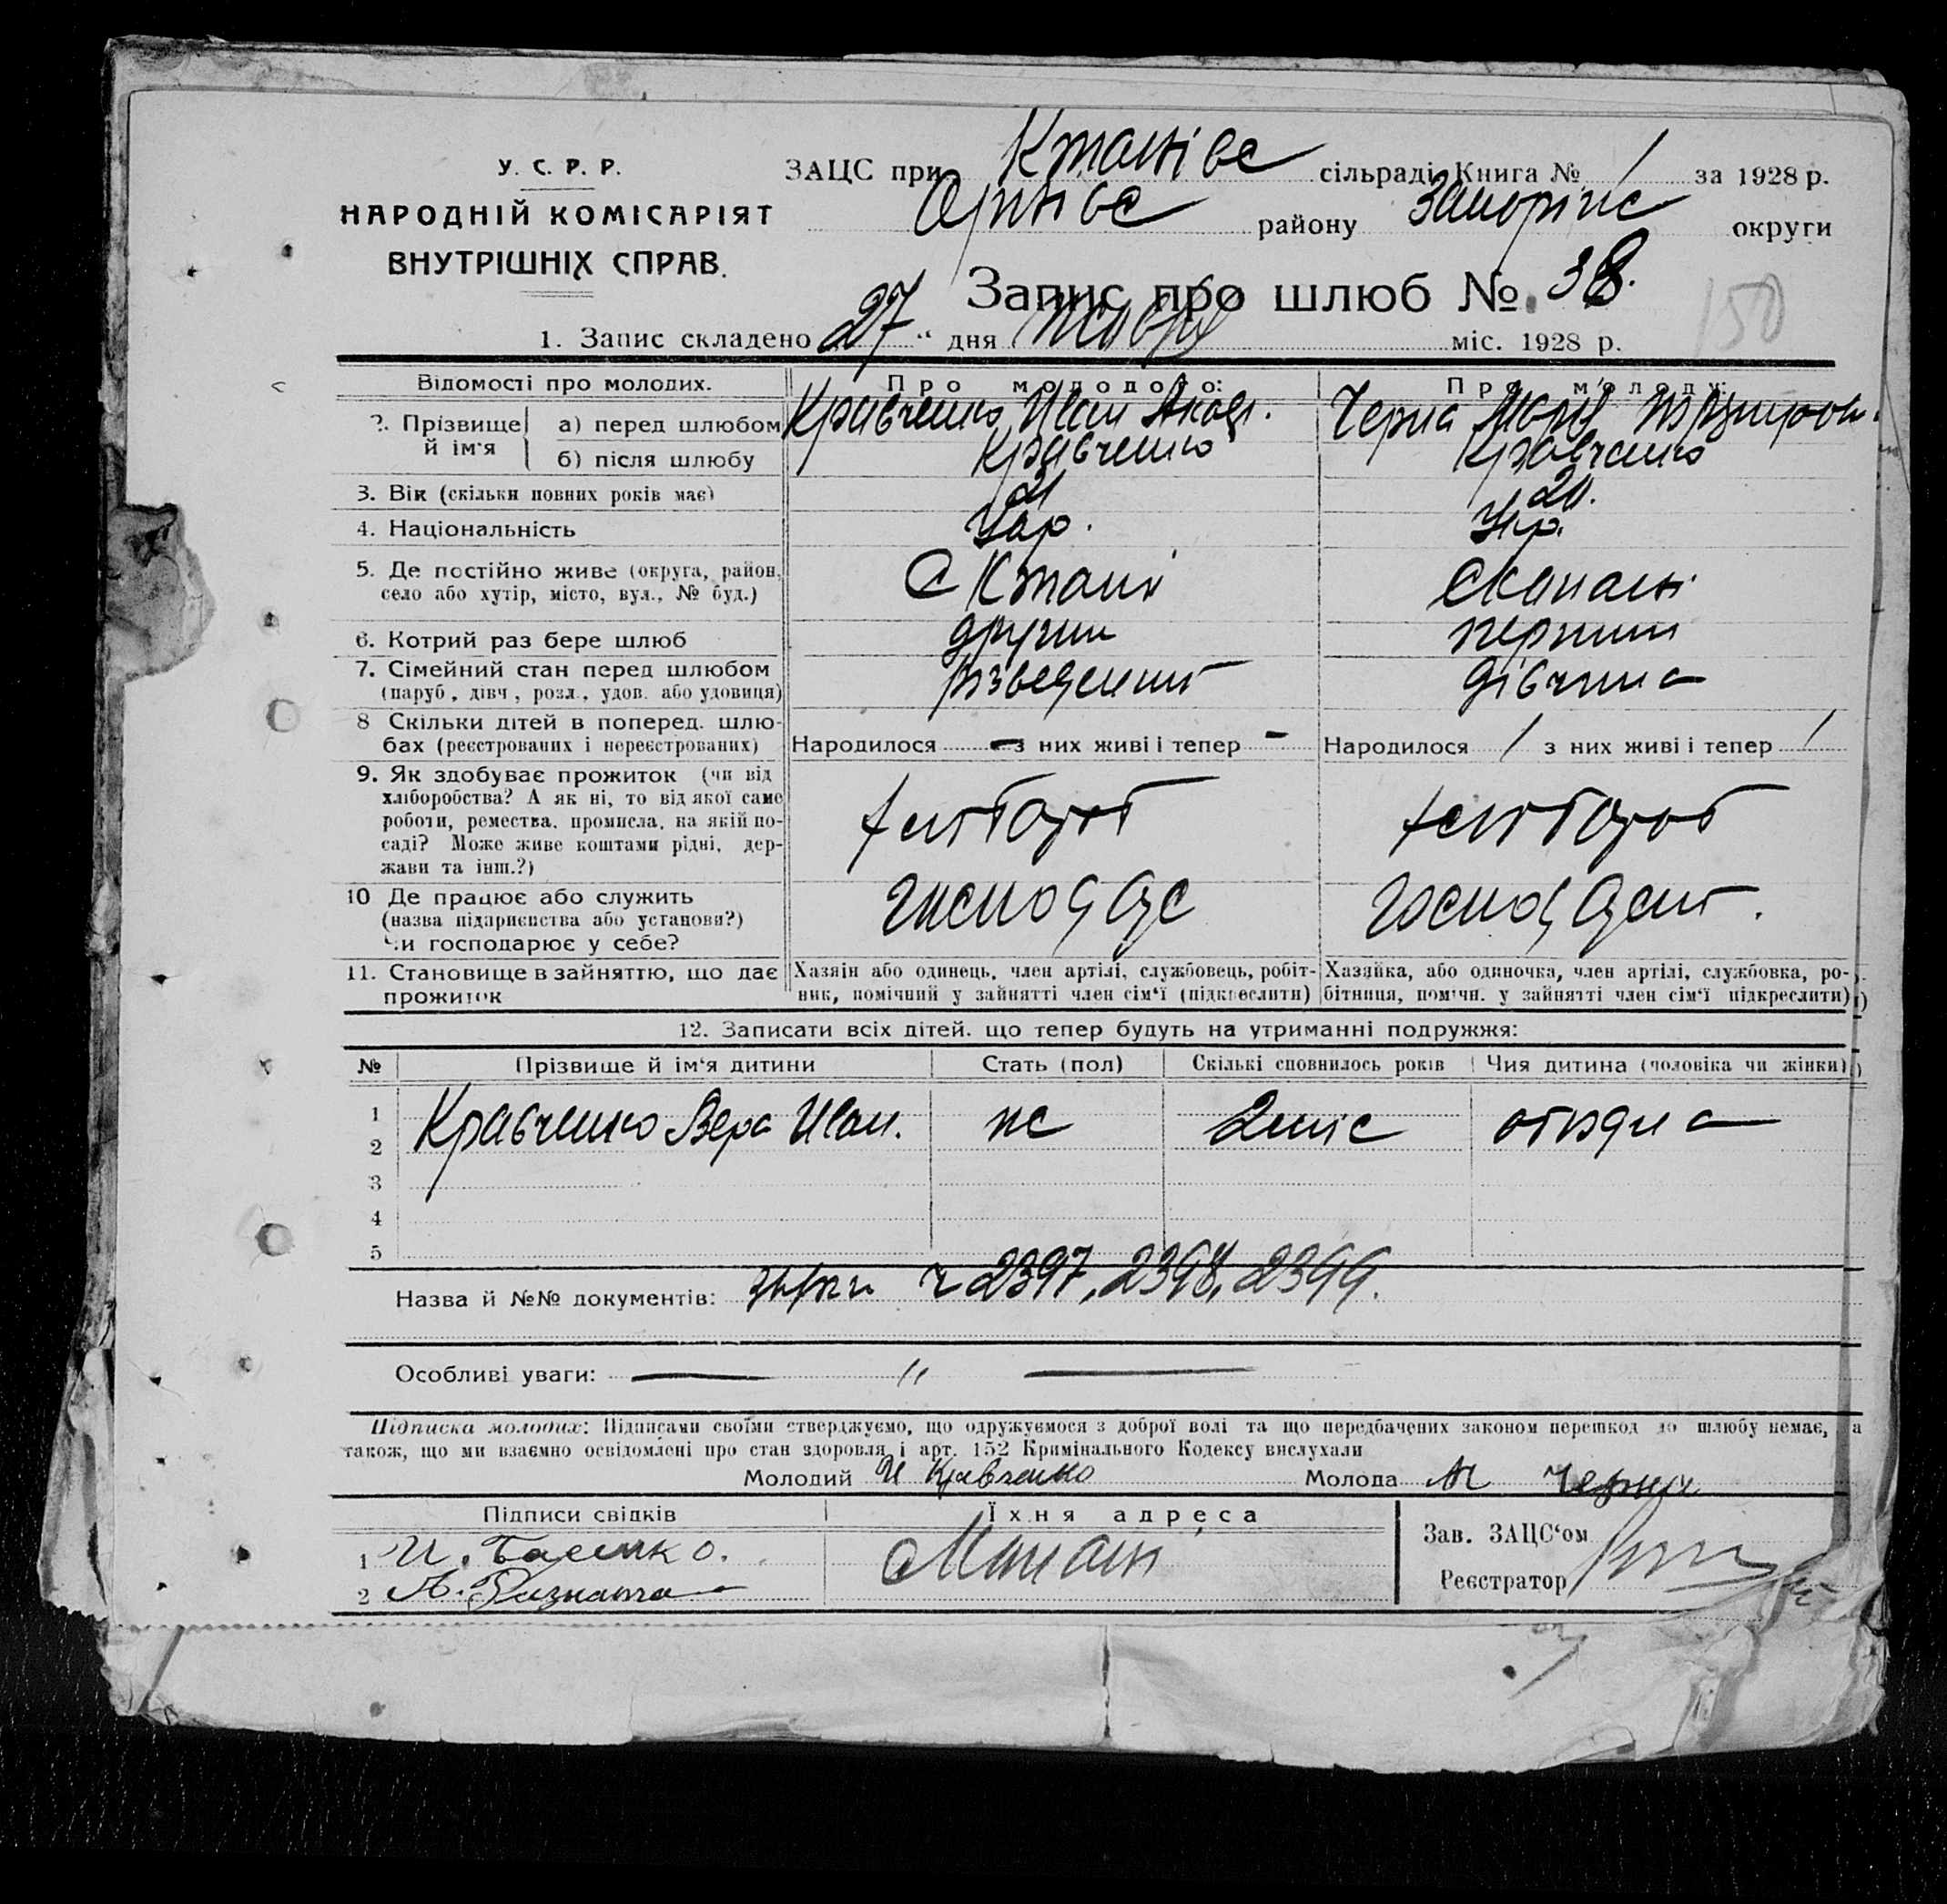 У. С. Р. Р.
НАРОДНІЙ КОМІСАРІЯТ
ВНУТРІШНІХ СПРАВ.
ЗАЦС при сільраді Книга № 1 за 1928 р.
району округи
Запис про шлюб № 38.
150
1. Запис складено 27 " дня міс. 1928 р.
Відомості про молодих. Про молодого: Про молоду:
2. Прізвище й ім'я а) перед шлюбом Кравченко Иван Яков. Черна
б) після шлюбу Кравченко Кравченко
3. Вік (скільки повних років має) 21 20.
4. Національність Укр. Укр.
5. Де постійно живе (округа, район,
село або хутір, місто, вул., № буд.)
6. Котрий раз бере шлюб другий первий
7. Сімейний стан перед шлюбом
(паруб., дівч., розл., удов. або удовиця) дівчина
8 Скільки дітей в поперед. шлю-
бах (реєстрованих і нереєстрованих) Народилося - з них живі і тепер - Народилося / з них живі і тепер /
9. Як здобуває прожиток (чи від
хліборобства? А як ні, то від якої саме
роботи, ремества, промисла, на якій по-
саді? Може живе коштами рідні, дер-
жави та інш.?)
10 Де працює або служить
(назва підприємства або установи?)
Чи господарює у себе?
11. Становище в зайняттю, що дає
прожиток
Хазяїн або одинець, член артілі, службовець, робіт-
ник, помічний у зайнятті член сім'ї (підкреслити)
Хазяйка, або одиночка, член артілі, службовка, ро-
бітниця, помічн. у зайнятті член сім'ї підкреслити)
12. Записати всіх дітей, що тепер будуть на утриманні подружжя:
№ Прізвище й ім'я дитини Стать (пол) Скількі сповнилось років Чия дитина (чоловіка чи жінки)
1
Кравченко Вера Иван. ж
2
3
4
5
Назва й №№ документів: 2397, 2398, 2399.
Особливі уваги: — " —
Підписка молодих: Підписами своїми стверджуємо, що одружуємося з доброї волі та що передбачених законом перешкод до шлюбу немає, а
також, що ми взаємно освідомлені про стан здоровля і арт. 152 Кримінального Кодексу вислухали
Молодий И Кравченко Молода М Черна
Підписи свідків Їхня адреса
Зав. ЗАЦС'ом
1 И.
Реєстратор
2 А.